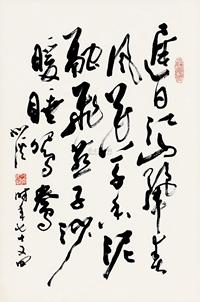 遲日江山麗春
风花草香泥
融飛燕子沙
暖睡鴛鴦
时年七十又四